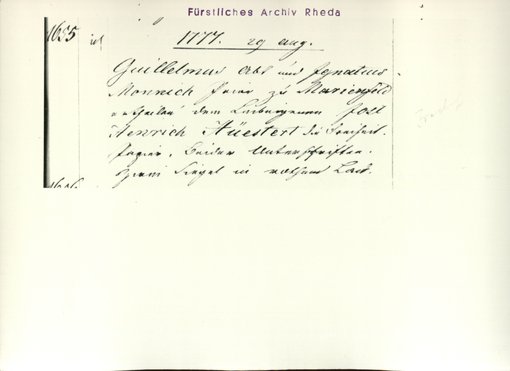 Fürstliches Archiv Rheda
1655
1777. 29 Aug.
Guillelmus Abt und Ignatius
Monnich Prior zu Marienfeld
ertheilen dem Leibeigenen Jost
Henrich Auestert die Freiheit.
Papier. Beider Unterschriften.
Zwei Siegel in rothem Lack.